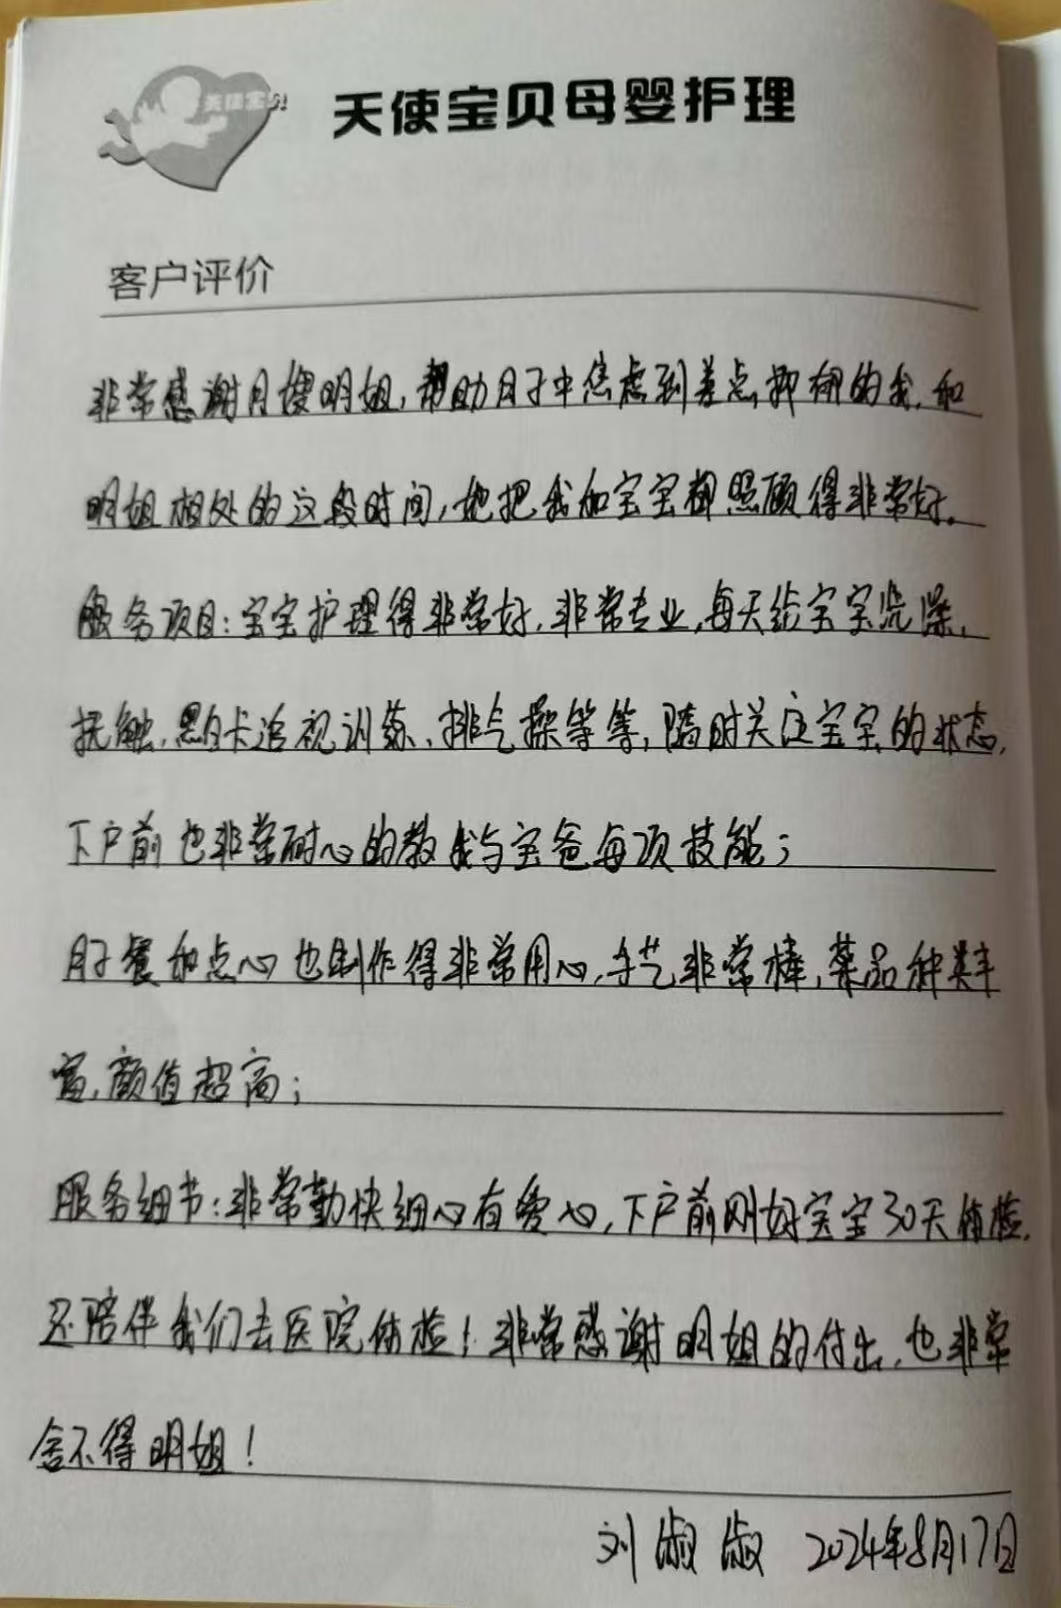 天使宝贝
天使宝贝母婴护理
客户评价
非常感谢月嫂明姐,帮助月子中焦虑到差点抑郁的我,和
明姐相处的这段时间,她把我和宝宝都照顾得非常好。
服务项目:宝宝护理得非常好,非常专业,每天给宝宝洗澡、
抚触、黑白卡追视训练、排气操等等,随时关注宝宝的状态,
下户前也非常耐心的教我与宝爸每项技能;
月子餐和点心也制作得非常用心,手艺非常棒,菜品种类丰
富,颜值超高;
服务细节:非常勤快细心有爱心,下户前刚好宝宝30天体检,
还陪伴我们去医院体检!非常感谢明姐的付出,也非常
舍不得明姐!
刘淑淑 2024年8月17日